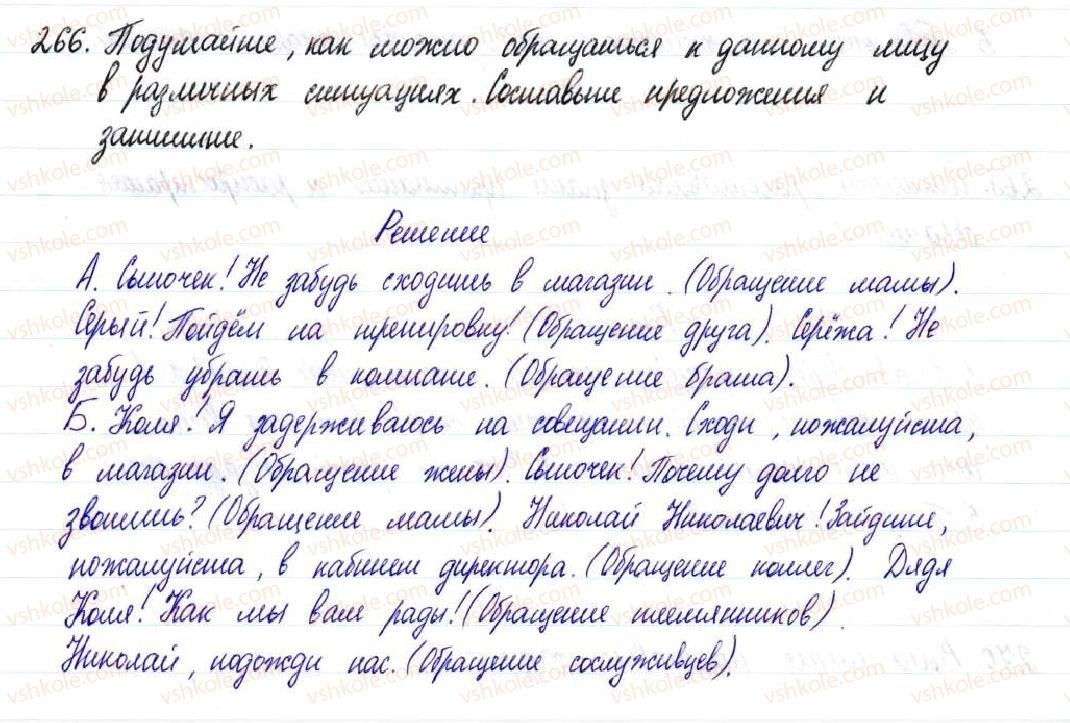 266. Подумайте, как можно обращаться к данному лицу
в различных ситуациях. Составьте предложения и
запишите.
Решение
А. Сыночек! Не забудь сходить в магазин. (Обращение мамы).
Серый! Пойдём на тренировку! (Обращение друга). Серёжа! Не
забудь убрать в комнате. (Обращение брата).
Б. Коля! Я задерживаюсь на совещании. Сходи, пожалуйста,
в магазин. (Обращение жены). Сыночек! Почему долго не
звонишь? (Обращение мамы). Николай Николаевич! Зайдите,
пожалуйста, в кабинет директора. (Обращение коллег). Дядя
Коля! Как мы вам рады! (Обращение племянников).
Николай, подожди нас. (Обращение сослуживцев).